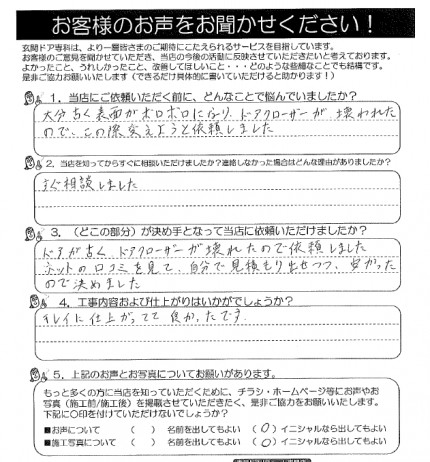 お客様のお声をお聞かせください！
玄関ドア専科は、より一層皆さまのご期待にこたえられるサービスを目指しています。
お客様のご意見を聞かせていただき、当店の今後の活動に反映させていただきたいと考えております。
よかったこと、うれしかったこと、改善してほしいこと・・・どのような些細なことでも結構です。
是非ご協力お願いいたします（できるだけ具体的に書いていただけると助かります！）
1．当店にご依頼いただく前に、どんなことで悩んでいましたか？
大分古く表面がボロボロになり、ドアクローザーが壊われた
ので、この際変えようと依頼しました
2．当店を知ってからすぐに相談いただけましたか？連絡しなかった場合はどんな理由がありましたか？
すぐ相談しました
3．（どこの部分）が決め手となって当店に依頼いただけましたか？
ドアが古く、ドアクローザーが壊れたので依頼しました
ネットの口コミを見て、自分で見積もり出せつつ、安かった
ので決めました
4．工事内容および仕上がりはいかがでしょうか？
キレイに仕上がってて良かったです。
5．上記のお声とお写真についてお願いがあります。
もっと多くの方に当店を知っていただくために、チラシ・ホームページ等にお声やお
写真（施工前/施工後）を掲載させていただきたく、是非ご協力をお願いいたします。
下記に〇印を付けていただけないでしょうか？
■お声について （ ） 名前を出してもよい （〇）イニシャルなら出してもよい
■施工写真について （ ） 名前を出してもよい （〇）イニシャルなら出してもよい